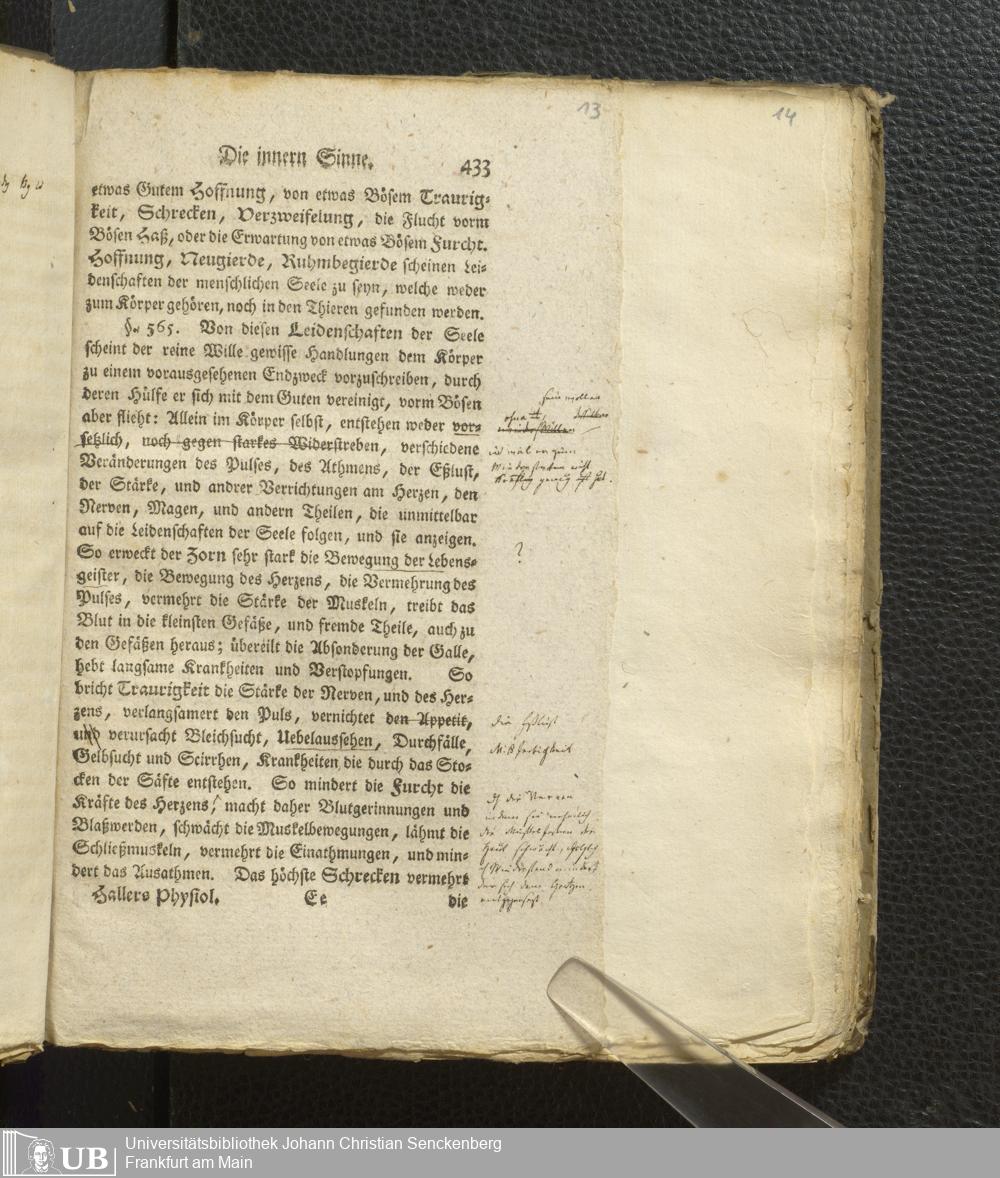 13
14
Die innern Sinne.
433
etwas Gutem Hoffnung, von etwas Bösem Traurig-
keit, Schrecken, Verzweifelung, die Flucht vorm
Bösen Haß, oder die Erwartung von etwas Bösem Furcht.
Hoffnung, Neugierde, Ruhmbegierde scheinen Lei-
denschaften der menschlichen Seele zu seyn, welche weder
zum Körper gehören, noch in den Thieren gefunden werden.
§. 565. Von diesen Leidenschaften der Seele
scheint der reine Wille gewisse Handlungen dem Körper
zu einem vorausgesehenen Endzweck vorzuschreiben, durch
deren Hülfe er sich mit dem Guten vereinigt, vorm Bösen
aber flieht: Allein im Körper selbst, entstehen weder vor-
setzlich, noch gegen starkes Widerstreben, verschiedene
Veränderungen des Pulses, des Athmens, der Eßlust,
der Stärke, und andrer Verrichtungen am Herzen, den
Nerven, Magen, und andern Theilen, die unmittelbar
auf die Leidenschaften der Seele folgen, und sie anzeigen.
So erweckt der Zorn sehr stark die Bewegung der Lebens-
geister, die Bewegung des Herzens, die Vermehrung des
?
Pulses, vermehrt die Stärke der Muskeln, treibt das
Blut in die kleinsten Gefäße, und fremde Theile, auch zu
den Gefäßen heraus; übereilt die Absonderung der Galle,
hebt langsame Krankheiten und Verstopfungen. So
bricht Traurigkeit die Stärke der Nerven, und des Her-
zens, verlangsamert den Puls, vernichtet den Appetit,
die Eßlust
und verursacht Bleichsucht, Uebelaussehen, Durchfälle,
Mißfarbigkeit
Gelbsucht und Scirrhen, Krankheiten die durch das Sto-
cken der Säfte entstehen. So mindert die Furcht die
Kräfte des Herzens, macht daher Blutgerinnungen und
Blaßwerden, schwächt die Muskelbewegungen, lähmt die
Schließmuskeln, vermehrt die Einathmungen, und min-
dert das Ausathmen. Das höchste Schrecken vermehrt
Hallers Physiol. Ee die
UB Universitätsbibliothek Johann Christian Senckenberg
Frankfurt am Main